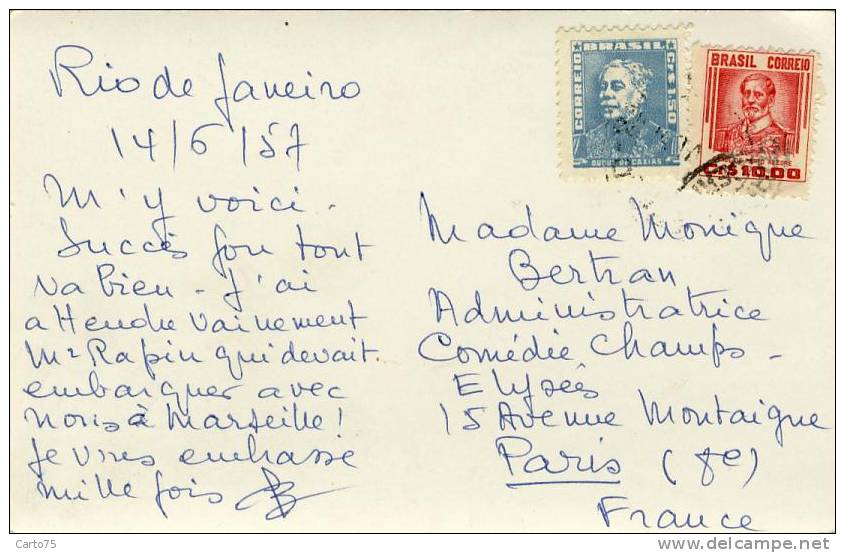 Rio de Janeiro
14/6/57
M'y voici.
Succès fou tout
va bien - J'ai
attendu vainement
Mr Rapin qui devait
embarquer avec
nous à Marseille!
Je vous embrasse
mille fois
BRASIL
CORREIO
CR$ 1,50
DUQUE DE CAXIAS
BRASIL CORREIO
Cr$ 10,00
Madame Monique
Bertran
Administratrice
Comédie Champs-
Elysées
15 Avenue Montaigne
Paris (8e)
France
Carto75
http://www.delcampe.net